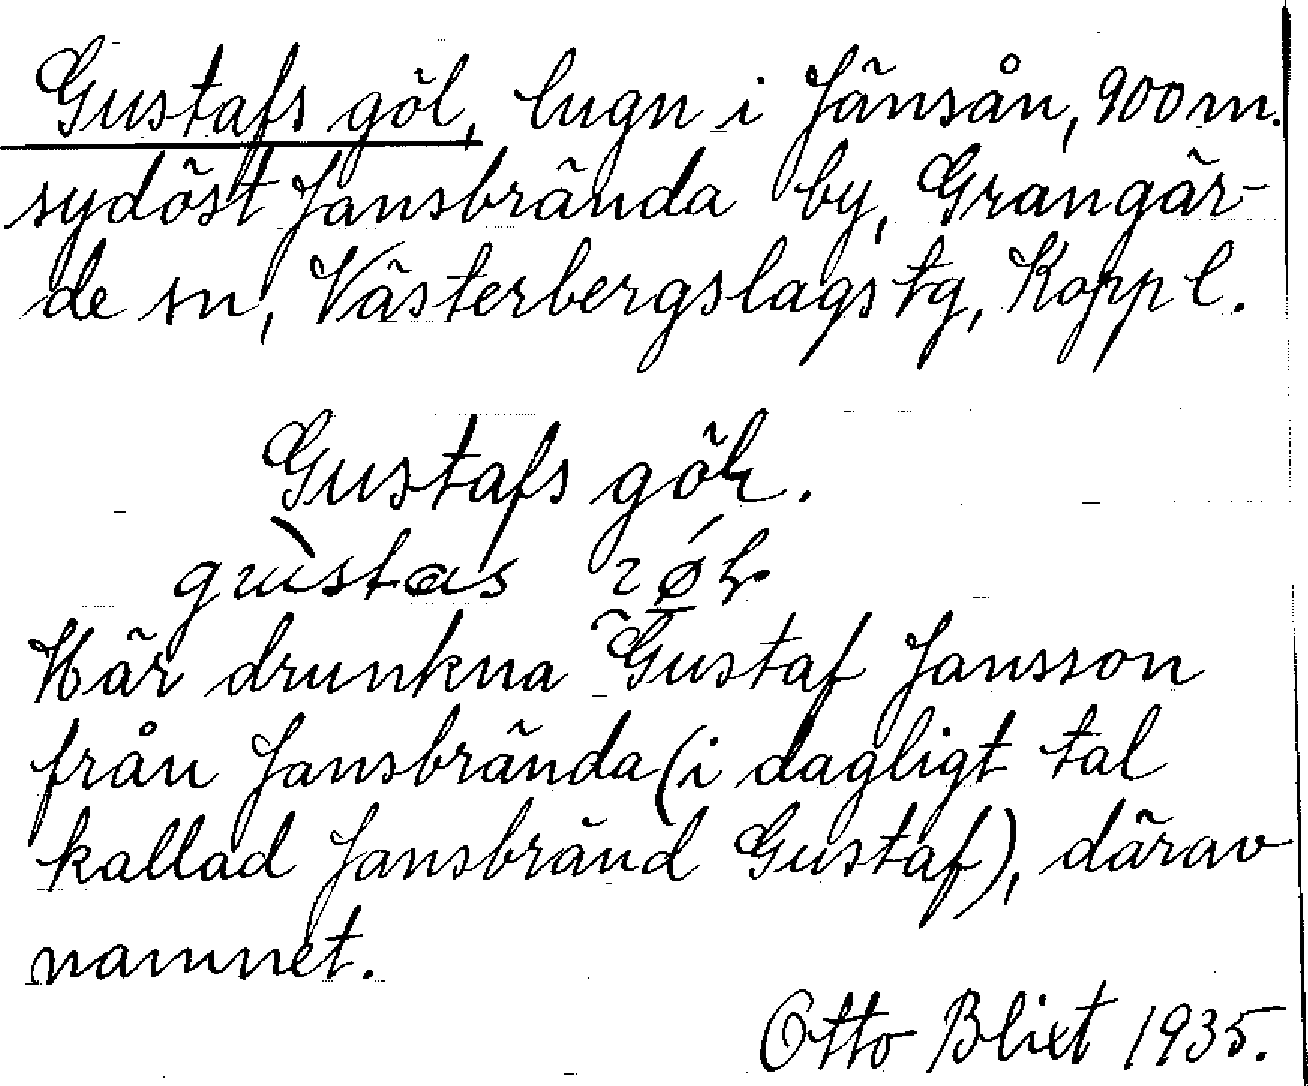 Gustafs göl, lugn i Jänsån, 900 m.
sydöst Jansbrända by, Grangär-
de sn, Västerbergslags tg, Kopp l.
Gustafs göl.
Här drunkna Gustaf Jansson
från Jansbrända (i dagligt tal
kallad Jansbränd Gustaf), därav
namnet.
Otto Blixt 1935.